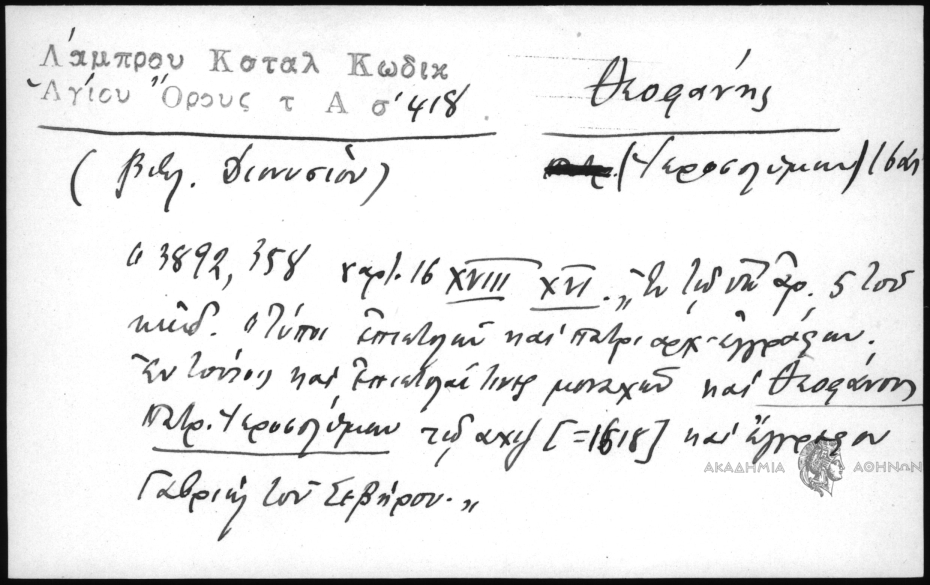 Λάμπρου Καταλ Κωδικ
Ἁγίου Ὄρους τ Α σ' 418
Θεοφάνης
(Βιβλ. Διονυσίου)
(Ἱεροσολύμων) 16ος
"3892, 358 χαρτ. 16 XVIII XVI. „Ἐν τῷ ὑπ' ἀρ. 5 τοῦ
κώδ. "Τύποι ἐπιστολῶν καὶ πατριαρχ. ἐγγράφων.
Ἐν τούτοις καὶ ἐπιστολαί τινες μοναχῶν καὶ Θεοφάνους
Πατρ. Ἱεροσολύμων τῷ αχιη [=1618] καὶ ἔγγραφον
Γαβριὴλ τοῦ Σεβήρου."
ΑΚΑΔΗΜΙΑ ΑΘΗΝΩΝ